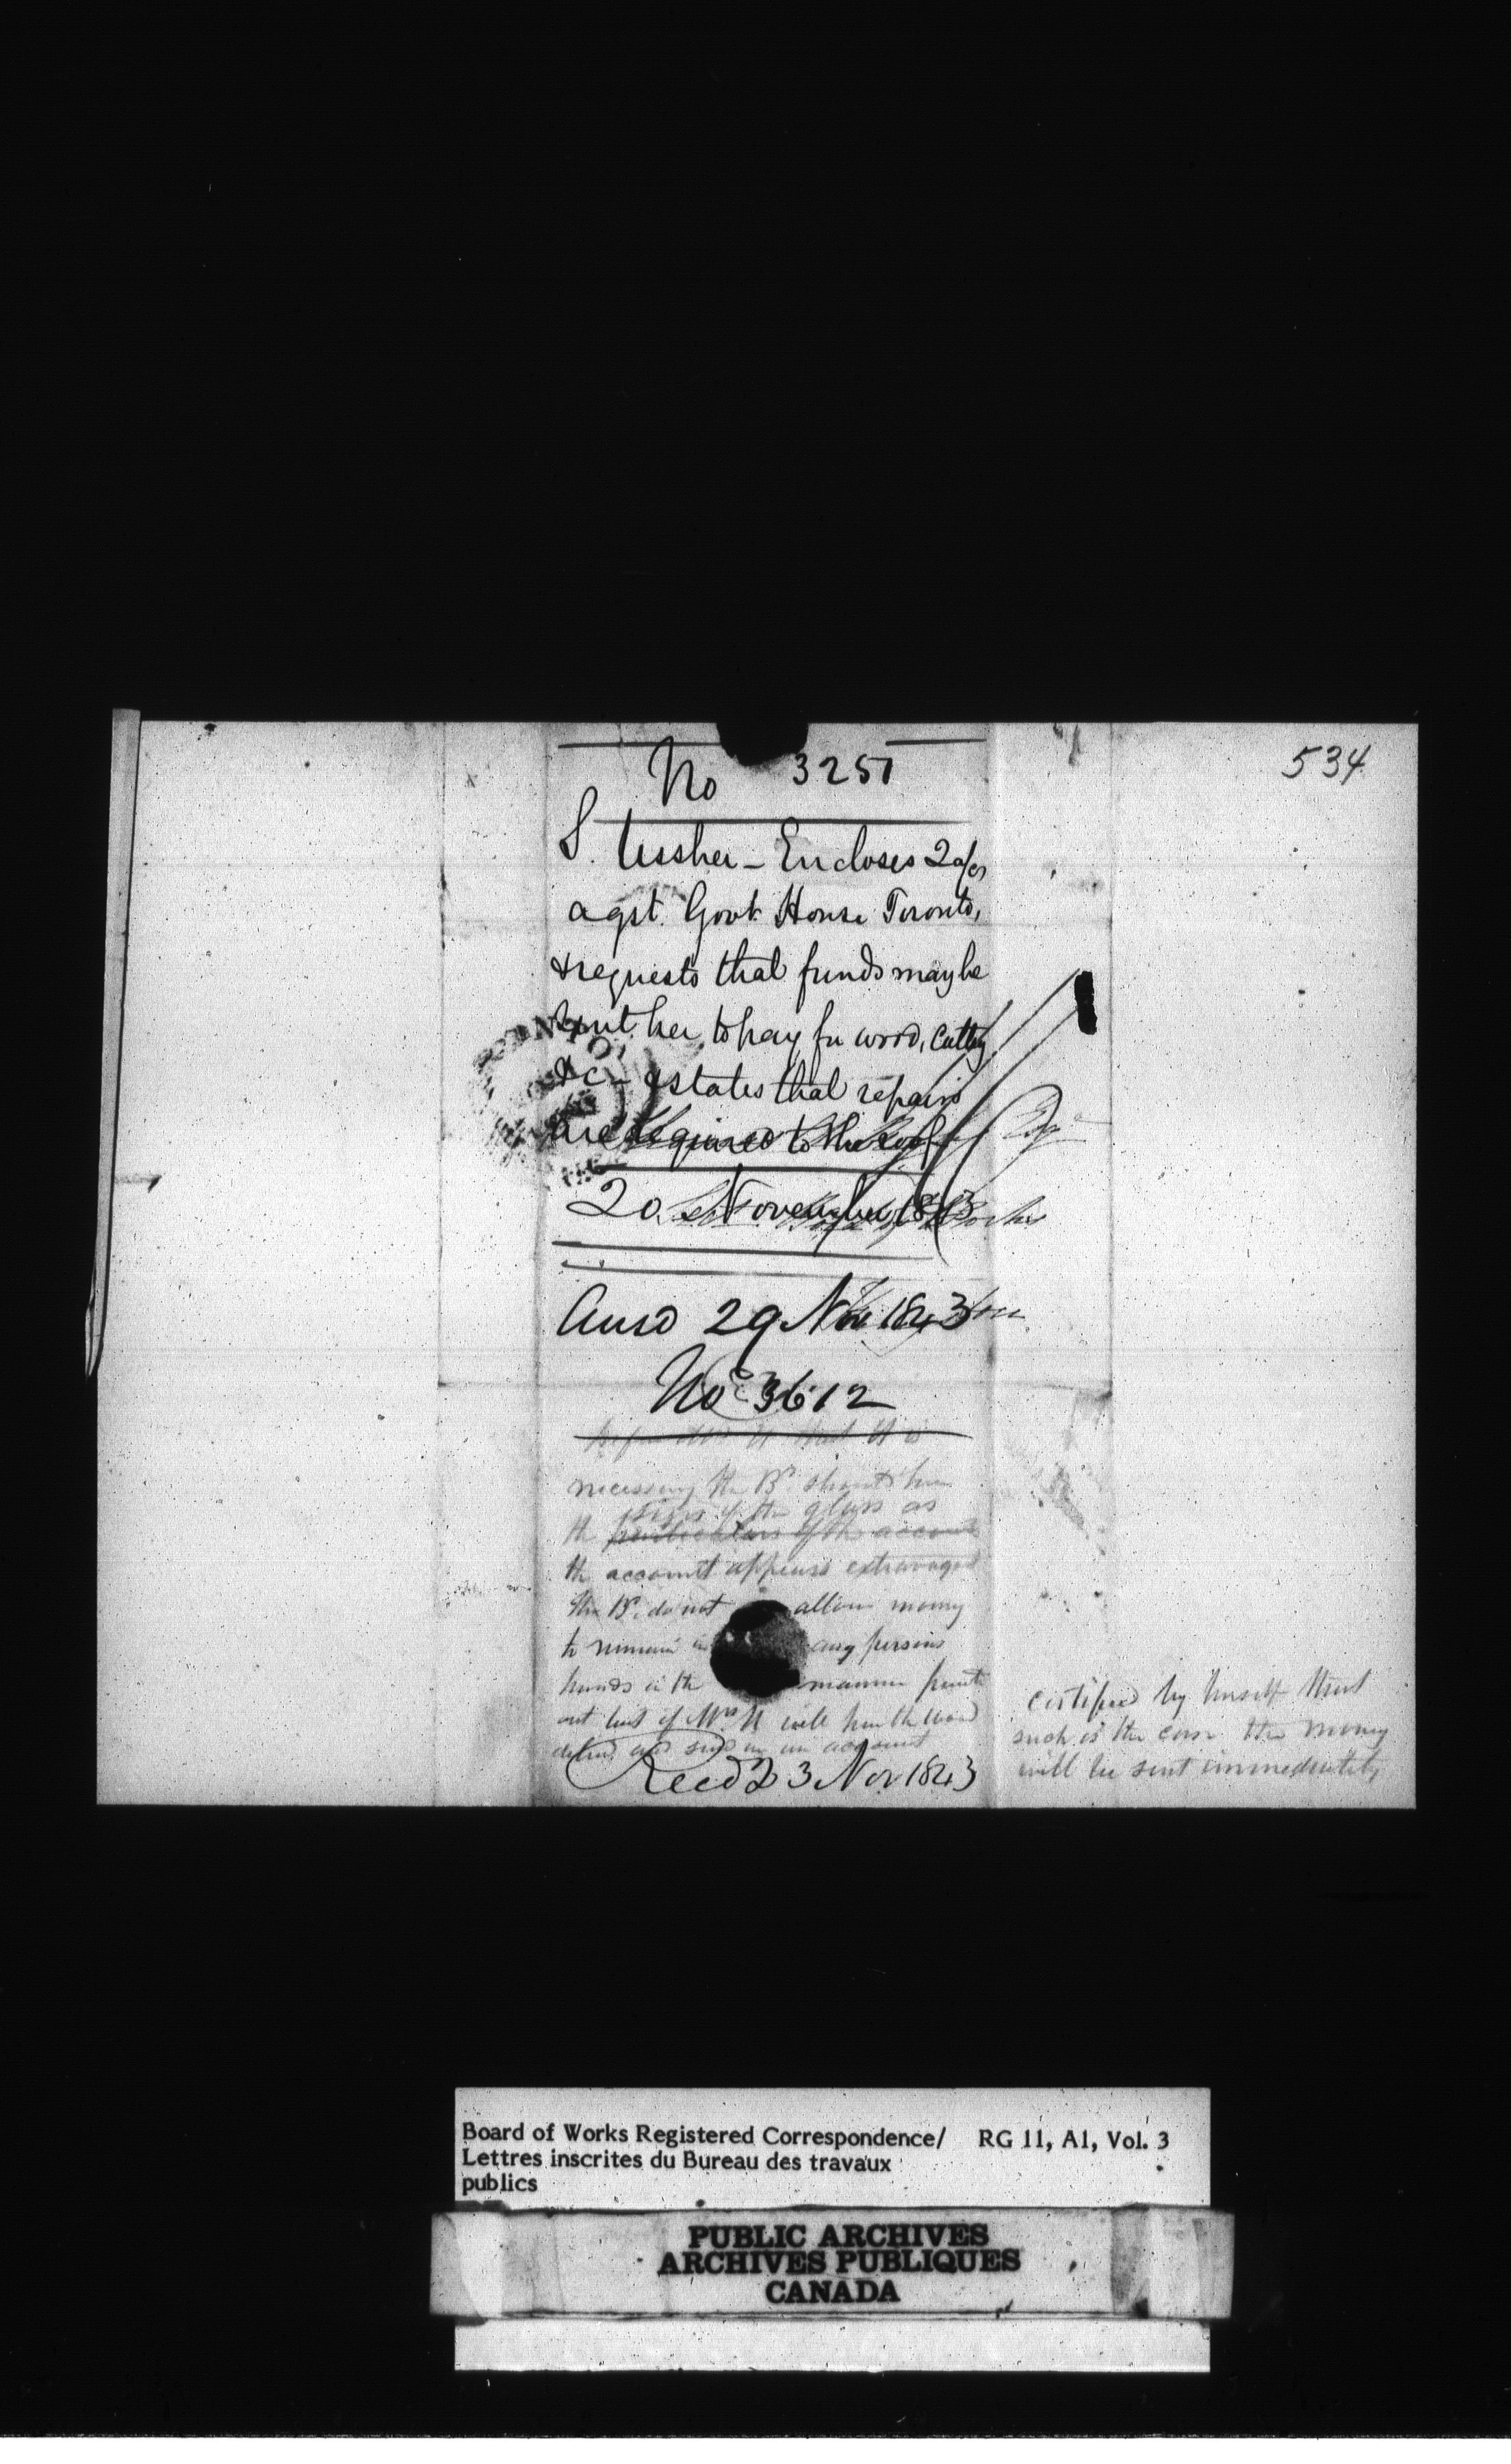 534
No 3251
S. Ussher - Encloses 2 a/cs
agst. Govt House Toronto,
& requests that funds may be
sent her, to pay for wood, cutting
&c - & states that repairs
are required to the roof
20 November 1843
Esqr
Works
Ansd 29 Nov 1843
No 3612
that it is
necessary the Bd. should have
sizes of the glass as
the particulars of the account
the account appears extravagant
The Bd. do not allow money
to remain in any persons
hands in the manner point
out but if Mrs U will have the wood
and send in an account
Recd 23 Nov 1843
certified by himself that
such is the case the money
will be sent immediately
Board of Works Registered Correspondence/ RG 11, A1, Vol. 3
Lettres inscrites du Bureau des travaux
publics
PUBLIC ARCHIVES
ARCHIVES PUBLIQUES
CANADA